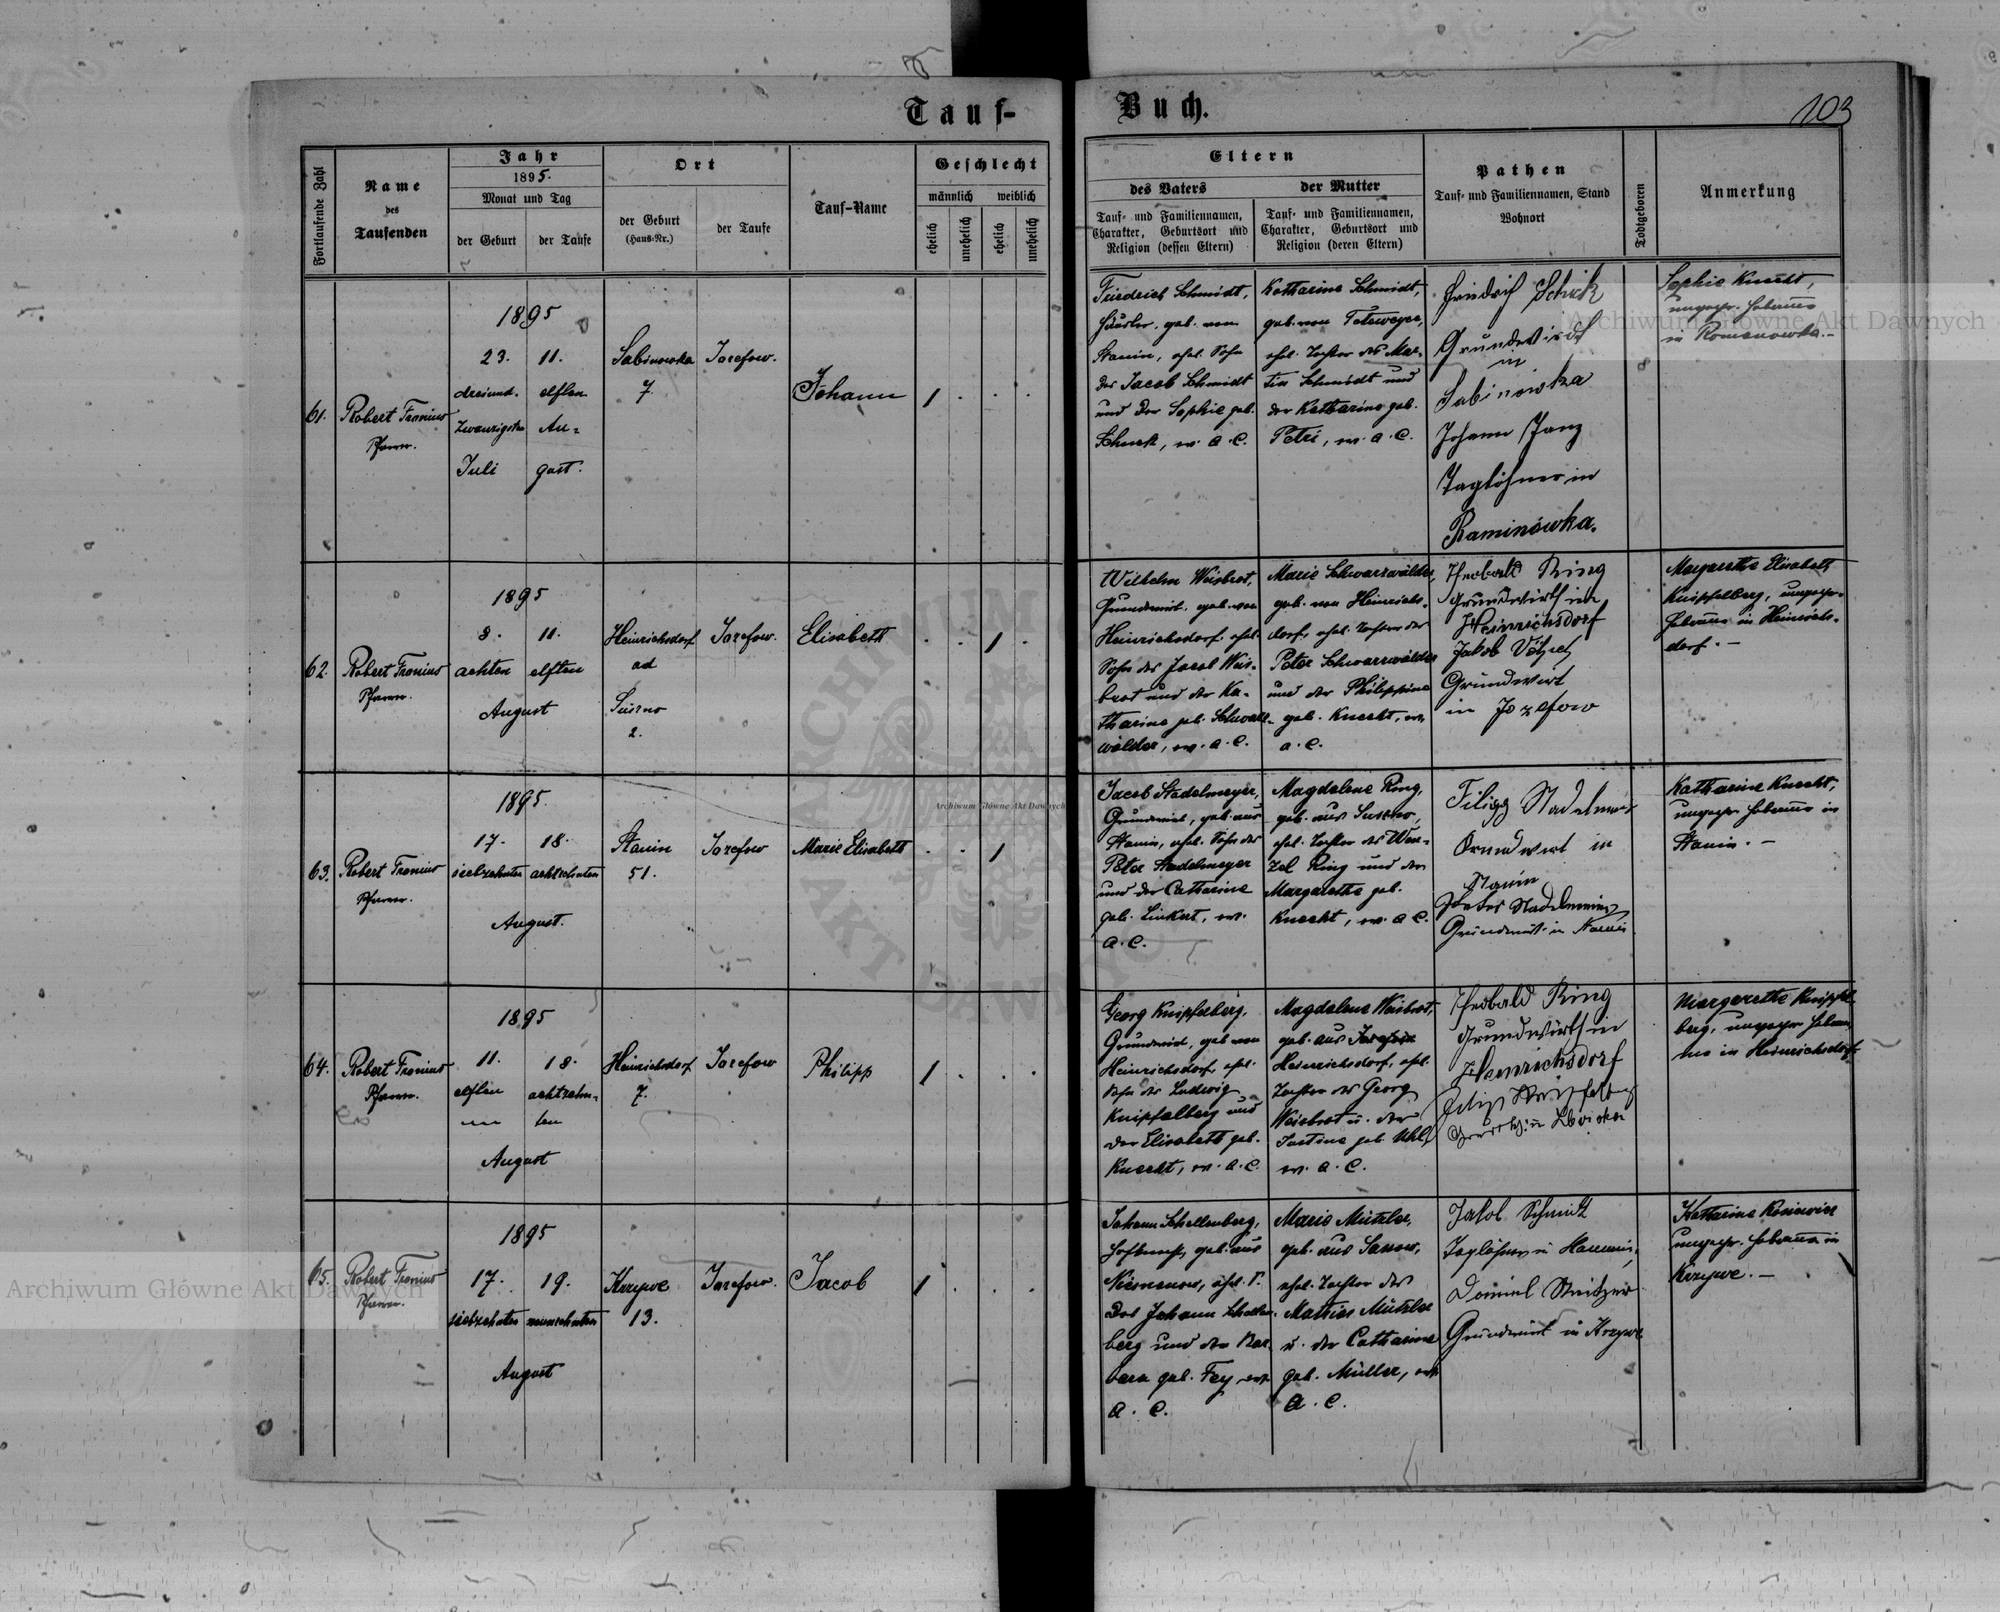 Tauf-Buch.
103
Fortlaufende Zahl
Name
des
Taufenden
Jahr
1895.
Monat und Tag
der Geburt
der Taufe
Ort
der Geburt
(Haus-Nr.)
der Taufe
Tauf-Name
Geschlecht
männlich
weiblich
ehelich
unehelich
ehelich
unehelich
Eltern
des Vaters
Tauf- und Familiennamen,
Charakter, Geburtsort und
Religion (dessen Eltern)
der Mutter
Tauf- und Familiennamen,
Charakter, Geburtsort und
Religion (deren Eltern)
Pathen
Tauf- und Familiennamen, Stand
Wohnort
Todtgeboren
Anmerkung
61.
Robert Fronius
Pfarrer.
1895
23. 11.
dreiund- elften
zwanzigsten Au-
Juli gust.
Sabinowka
7.
Jozefow.
Johann
1 . . .
Friedrich Schmidt,
geb. von
Stanin, ehel. Sohn
des Jacob Schmidt
und der Sophie geb.
Schuck, ev. A. C.
Katharine Schmidt,
geb. von
ehel. Tochter des Mar-
tin Schmidt und
der Katharine geb.
Petri, ev. A. C.
Friedrich Schuck
Grundwirth
in
Sabinowka
Johann
Taglöhner in
Kaminówka.
Sophie Knecht,
ungepr. Hebamme
in Romanowka. -
62.
Robert Fronius
Pfarrer.
1895
8. 11.
achten elften
August
Heinrichsdorf
ad
Suszno
2.
Jozefow.
Elisabeth
. . 1 .
Wilhelm Weisbrot,
Grundwirt, geb. von
Heinrichsdorf, ehel.
Sohn des Jacob Weis-
brot und der Ka-
tharine geb. Schwarz-
wälder, ev. A. C.
Marie Schwarzwälder,
geb. von Heinrichs-
dorf, ehel. Tochter des
Peter Schwarzwälder
und der Philippine
geb. Knecht, ev.
A. C.
Theobald Ring
Grundwirth in
Heinrichsdorf
Jakob
Grundwirt
in Jozefow
Margarethe Elisabeth
Knipfelberg, ungepr.
Hebamme in Heinrichs-
dorf. -
63.
Robert Fronius
Pfarrer.
1895.
17. 18.
siebzehnten achtzehnten
August.
Stanin
51.
Jozefow
Marie Elisabeth
. . 1
Jacob Stadelmeyer,
Grundwirt, geb. aus
Stanin, ehel. Sohn des
Peter Stadelmeyer
und der Catharine
geb. Linkert, ev.
A. C.
Magdalene Ring,
geb. aus Suszno,
ehel. Tochter des Wen-
zel Ring und der
Margarethe geb.
Knecht, ev. A. C.
Filipp Stadelmeier
Grundwirt in
Stanin
Peter Stadelmeier
Grundwirt in Stanin
Katharine Knecht,
ungepr. Hebamme in
Stanin. -
64.
Robert Fronius
Pfarrer.
1895
11. 18.
elften achtzehn-
ten
August
Heinrichsdorf
7.
Jozefow
Philipp
1 . . .
Georg Knipfelberg,
Grundwirt, geb. von
Heinrichsdorf, ehel.
Sohn des Ludwig
Knipfelberg und
der Elisabeth geb.
Knecht, ev. A. C.
Magdalena Weisbrot,
geb. aus Jozefow
Heinrichsdorf, ehel.
Tochter des Georg
Weisbrot u. der
Justine geb. Uhl,
ev. A. C.
Theobald Ring
Grundwirth in
Heinrichsdorf
Margarethe Knipfel-
berg, ungepr. Hebam-
me in Heinrichsdorf
65.
Robert Fronius
Pfarrer.
1895
17. 19.
siebzehnten neunzehnten
August
Krzywe
13.
Jozefow.
Jacob
1 . . .
Johann Schellenberg,
geb. aus
ehel. S.
des Johann Schellen-
berg und der Bar-
bara geb. Fey, ev.
A. C.
Marie Mützler,
geb. aus
ehel. Tochter des
Mathias Mützler
u. der Catharine
geb. Müller, ev.
A. C.
Jakob Schmidt
Taglöhner in
Grundwirt in Krzywe
Katharina
ungepr. Hebamme in
Krzywe. -
Archiwum Główne Akt Dawnych
Archiwum Główne Akt Dawnych
Archiwum Główne Akt Dawnych
ARCHIWUM
AKT DAWNYCH